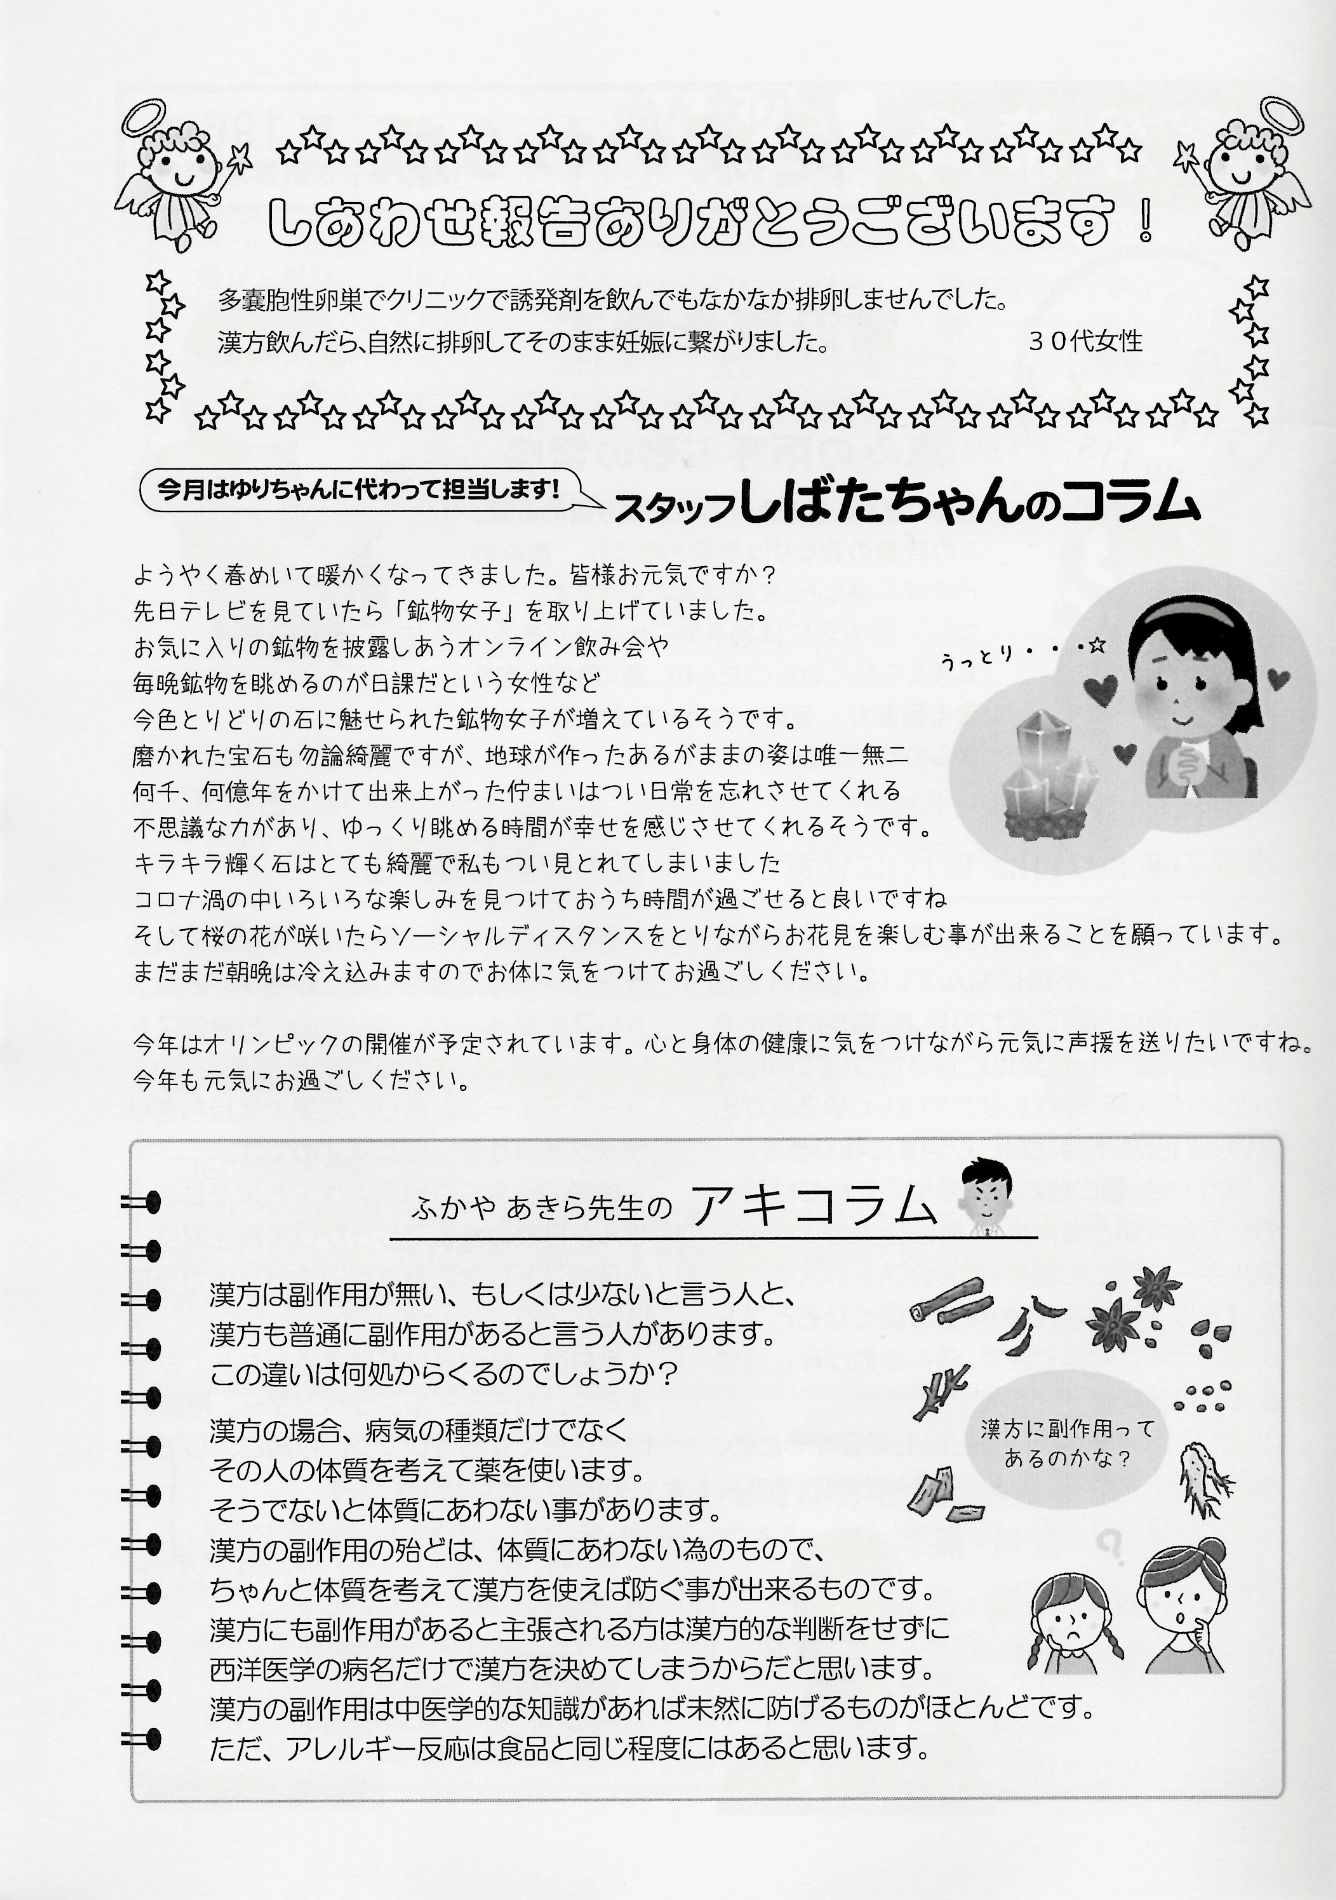 しあわせ報告ありがとうございます！
多嚢胞性卵巣でクリニックで誘発剤を飲んでもなかなか排卵しませんでした。
漢方飲んだら､自然に排卵してそのまま妊娠に繋がりました。 ３０代女性
今月はゆりちゃんに代わって担当します!
スタッフしばたちゃんのコラム
ようやく春めいて暖かくなってきました。皆様お元気ですか？
先日テレビを見ていたら「鉱物女子」を取り上げていました。
お気に入りの鉱物を披露しあうオンライン飲み会や
毎晩鉱物を眺めるのが日課だという女性など
今色とりどりの石に魅せられた鉱物女子が増えているそうです。
磨かれた宝石も勿論綺麗ですが、地球が作ったあるがままの姿は唯一無二
何千、何億年をかけて出来上がった佇まいはつい日常を忘れさせてくれる
不思議な力があり、ゆっくり眺める時間が幸せを感じさせてくれるそうです。
キラキラ輝く石はとても綺麗で私もつい見とれてしまいました
コロナ渦の中いろいろな楽しみを見つけておうち時間が過ごせると良いですね
そして桜の花が咲いたらソーシャルディスタンスをとりながらお花見を楽しむ事が出来ることを願っています。
まだまだ朝晩は冷え込みますのでお体に気をつけてお過ごしください。
うっとり・・・☆
今年はオリンピックの開催が予定されています。心と身体の健康に気をつけながら元気に声援を送りたいですね。
今年も元気にお過ごしください。
ふかや あきら先生の アキコラム
漢方は副作用が無い、もしくは少ないと言う人と、
漢方も普通に副作用があると言う人があります。
この違いは何処からくるのでしょうか？
漢方の場合、病気の種類だけでなく
その人の体質を考えて薬を使います。
そうでないと体質にあわない事があります。
漢方の副作用の殆どは、体質にあわない為のもので、
ちゃんと体質を考えて漢方を使えば防ぐ事が出来るものです。
漢方にも副作用があると主張される方は漢方的な判断をせずに
西洋医学の病名だけで漢方を決めてしまうからだと思います。
漢方の副作用は中医学的な知識があれば未然に防げるものがほとんどです。
ただ、アレルギー反応は食品と同じ程度にはあると思います。
漢方に副作用って
あるのかな？
?